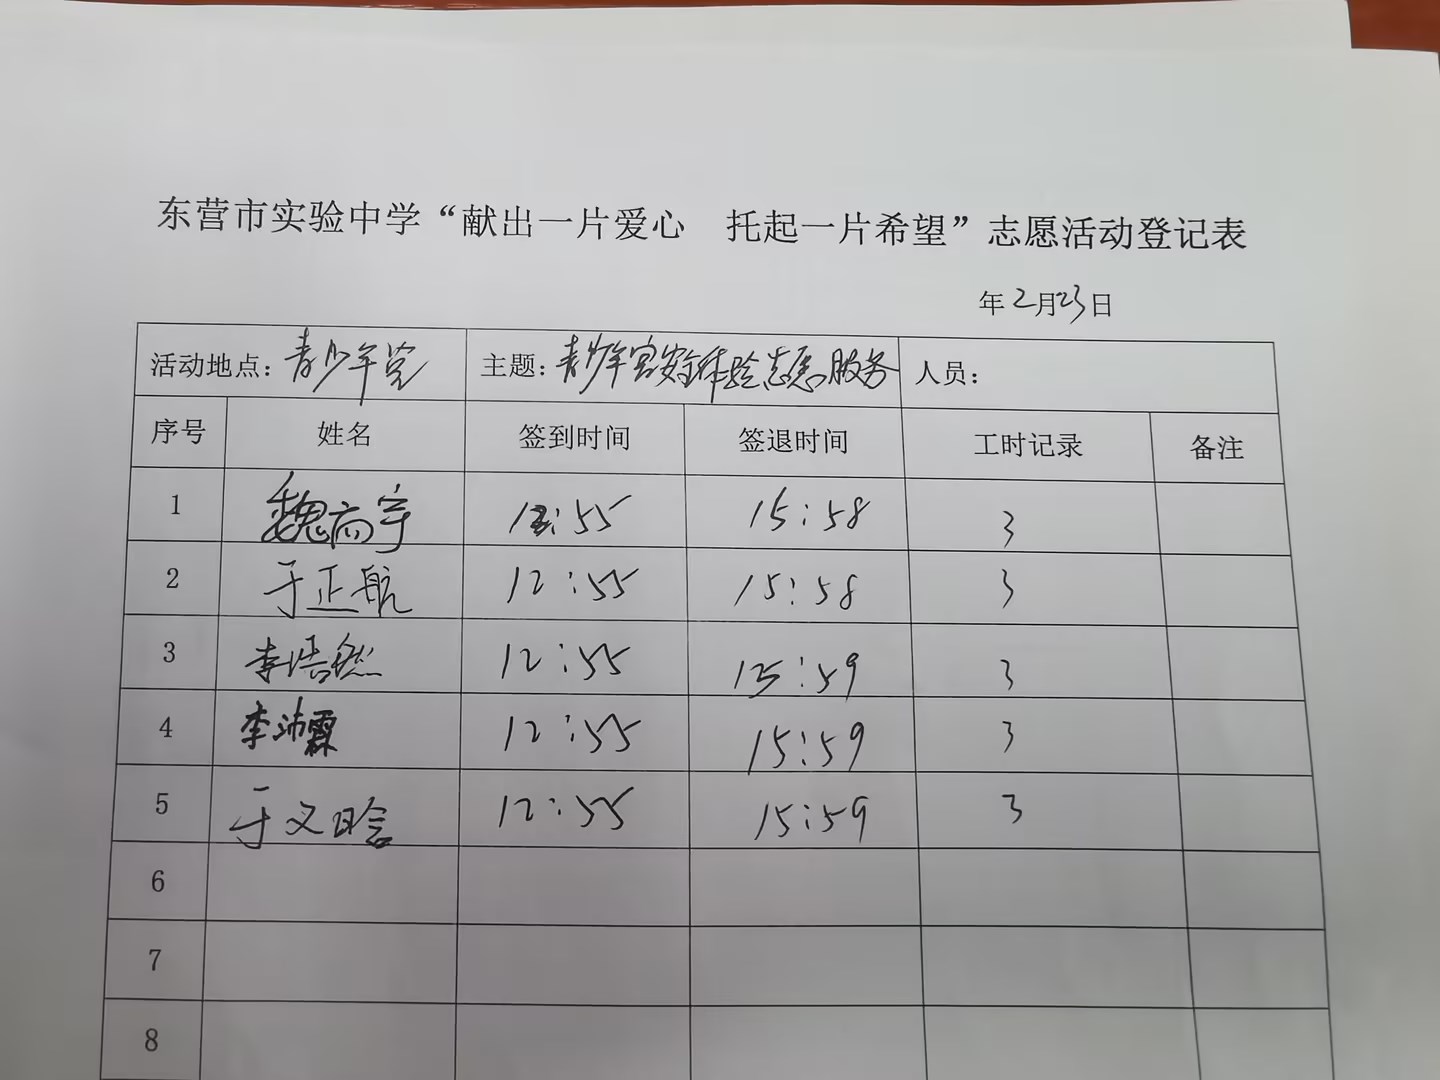 东营市实验中学“献出一片爱心 托起一片希望”志愿活动登记表
年2月23日
活动地点：青少年宫 主题：青少年宫安全体验志愿服务 人员：
序号 姓名 签到时间 签退时间 工时记录 备注
1 魏高宇 12:55 15:58 3
2 于正航 12:55 15:58 3
3 李浩然 12:55 15:59 3
4 李沛霖 12:55 15:59 3
5 于文晗 12:55 15:59 3
6
7
8